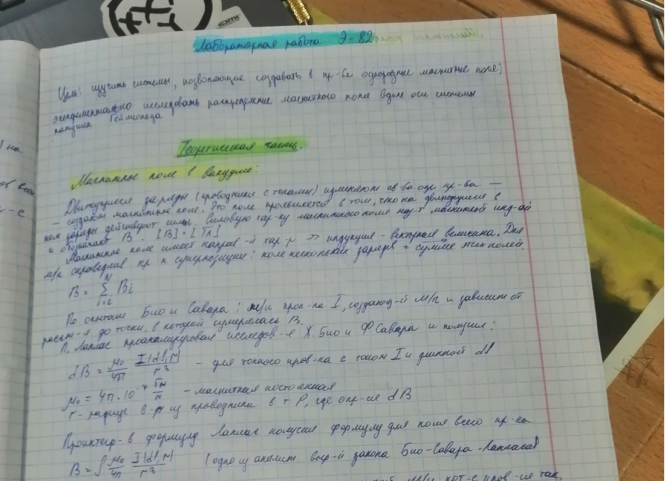 Лабораторная работа Э-82
Цель: изучить системы, позволяющие создавать в пр-ве однородные магнитные поля;
экспериментально исследовать распределение магнитного поля вдоль оси системы
катушек Гельмгольца
Теоретическая часть.
Магнитное поле в вакууме:
Движущиеся заряды (проводники с токами) изменяют св-ва окр. пр-ва —
создают магнитное поле. Это поле проявляется в том, что на движущиеся в
нем заряды действуют силы. Силовую хар-ку магнитного поля наз-т магнитной инд-ей
и обозначают B. [B] = [Тл]
Магнитное поле имеет направ-й хар-р ⇒ индукция - векторная величина. Для
м/п справедлив пр-п суперпозиции: поле нескольких зарядов = сумме этих полей.
B = Σ Bi
По опытам Био и Савара: м/п проп-но I, создающ-й м/п и зависит от
расст-я до точки, в которой измерялась B.
П. Лаплас проанализировал исследов-я Ж. Био и Ф Савара и получил:
dB = μ0/4π I[dl, r]/r³ - для тонкого пров-ка с током I и длиной dl
μ0 = 4π·10⁻⁷ Гн/м - магнитная постоянная
r - радиус в-р из проводника в т P, где опр-ся dB
Проинтегр-в формулу Лаплас получил формулу для поля всего пр-ка
B = ∫ μ0/4π I[dl, r]/r³ (одно из аналит. выр-й закона Био-Савара-Лапласа)